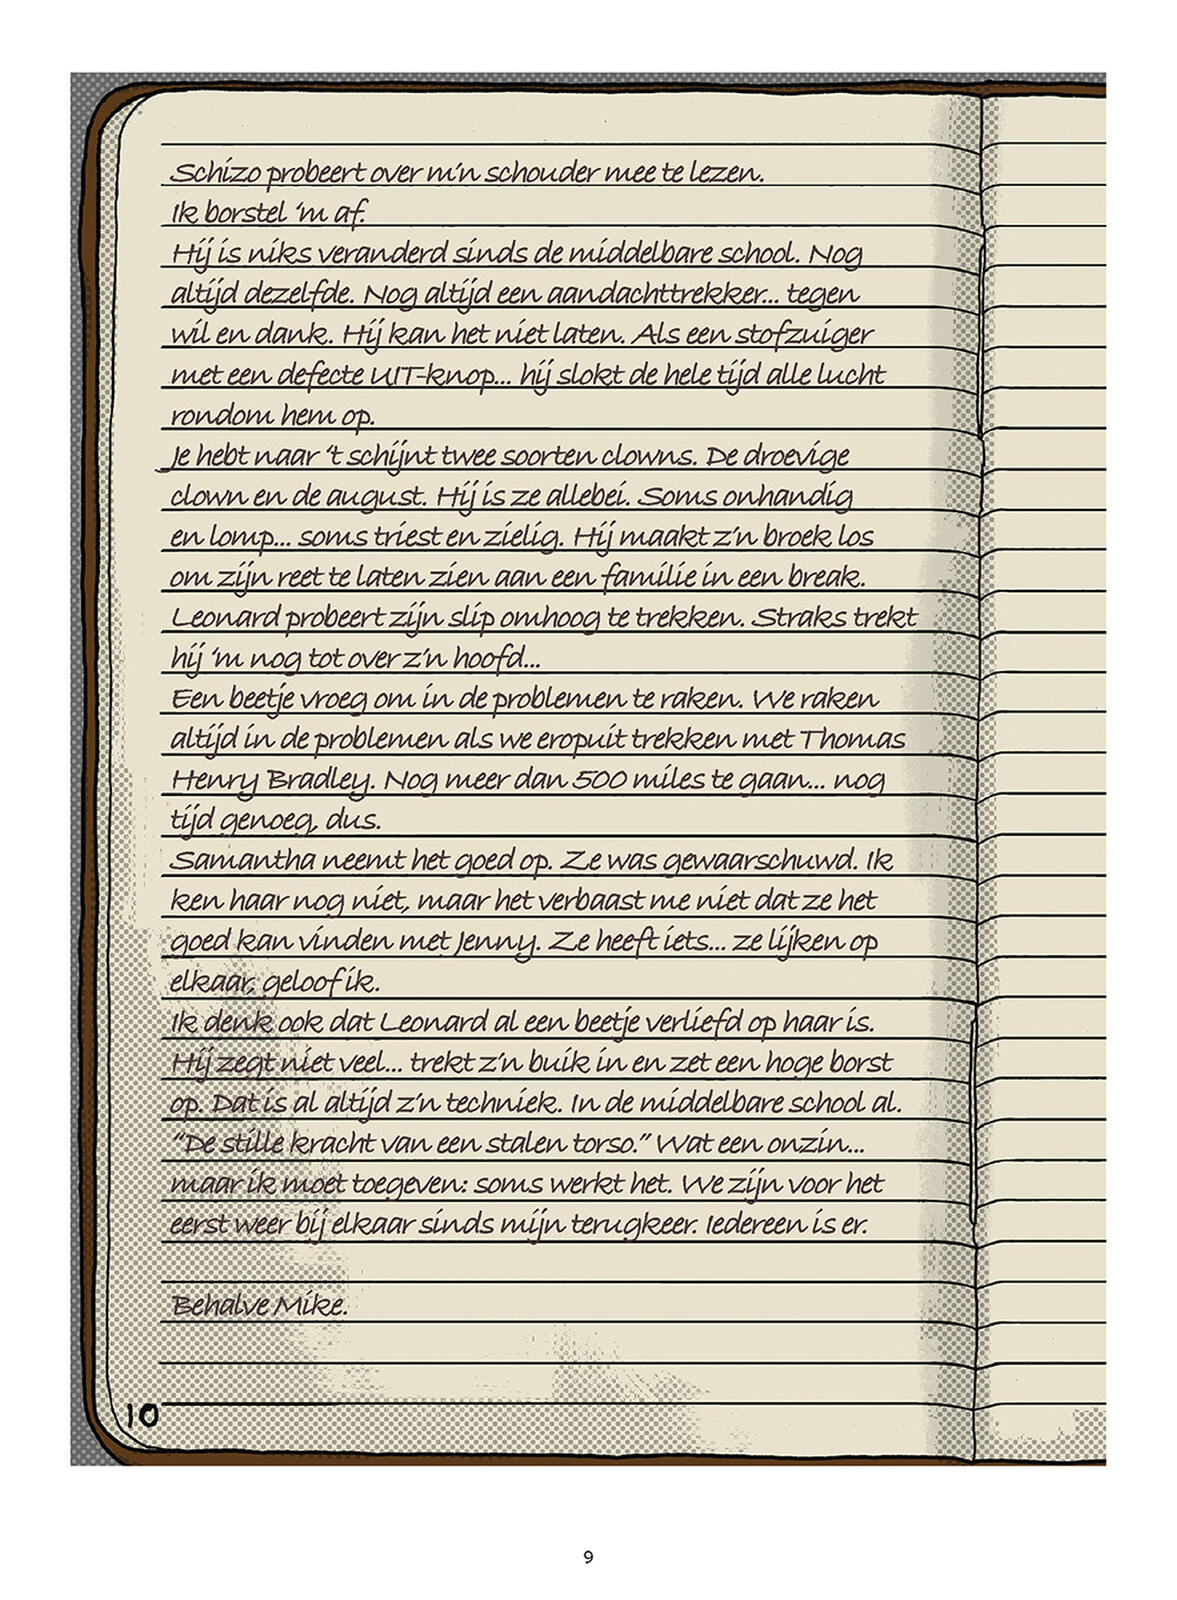 Schizo probeert over m'n schouder mee te lezen.
Ik borstel 'm af.
Hij is niks veranderd sinds de middelbare school. Nog
altijd dezelfde. Nog altijd een aandachttrekker... tegen
wil en dank. Hij kan het niet laten. Als een stofzuiger
met een defecte UIT-knop... hij slokt de hele tijd alle lucht
rondom hem op.
Je hebt naar 't schijnt twee soorten clowns. De droevige
clown en de august. Hij is ze allebei. Soms onhandig
en lomp... soms triest en zielig. Hij maakt z'n broek los
om zijn reet te laten zien aan een familie in een break.
Leonard probeert zijn slip omhoog te trekken. Straks trekt
hij 'm nog tot over z'n hoofd...
Een beetje vroeg om in de problemen te raken. We raken
altijd in de problemen als we eropuit trekken met Thomas
Henry Bradley. Nog meer dan 500 miles te gaan... nog
tijd genoeg, dus.
Samantha neemt het goed op. Ze was gewaarschuwd. Ik
ken haar nog niet, maar het verbaast me niet dat ze het
goed kan vinden met Jenny. Ze heeft iets... ze lijken op
elkaar, geloof ik.
Ik denk ook dat Leonard al een beetje verliefd op haar is.
Hij zegt niet veel... trekt z'n buik in en zet een hoge borst
op. Dat is al altijd z'n techniek. In de middelbare school al.
"De stille kracht van een stalen torso." Wat een onzin...
maar ik moet toegeven: soms werkt het. We zijn voor het
eerst weer bij elkaar sinds mijn terugkeer. Iedereen is er.
Behalve Mike.
10
9